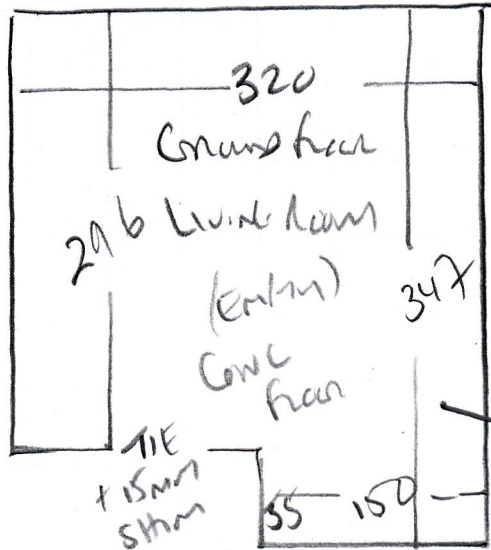 320
Ground floor
296 Living Room
(Entry)
347
Conc
floor
TIE
+ 15mm
SHIM
55 150